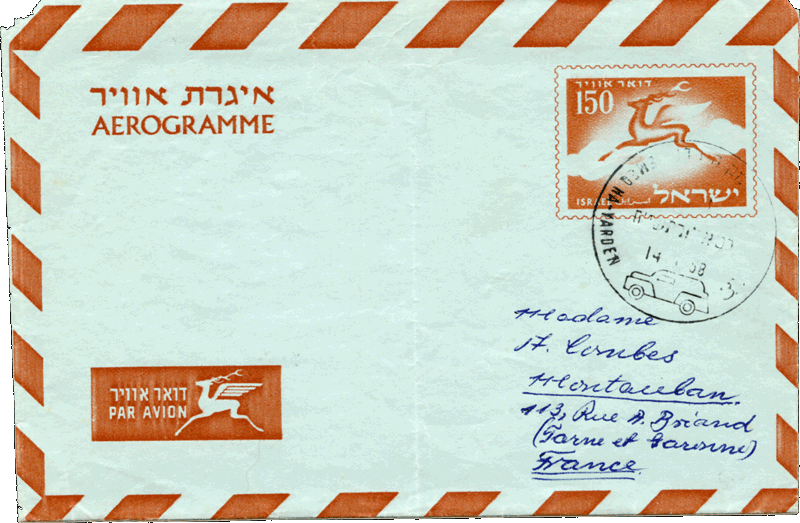 איגרת אוויר
AEROGRAMME
דואר אוויר
150
ישראל
ISRAEL اسرائيل
EMEQ HA-YARDEN
דואר אוויר
PAR AVION
Madame
A. Combes
Montauban.
113, Rue A. Briand
(Tarne et Garonne)
France.